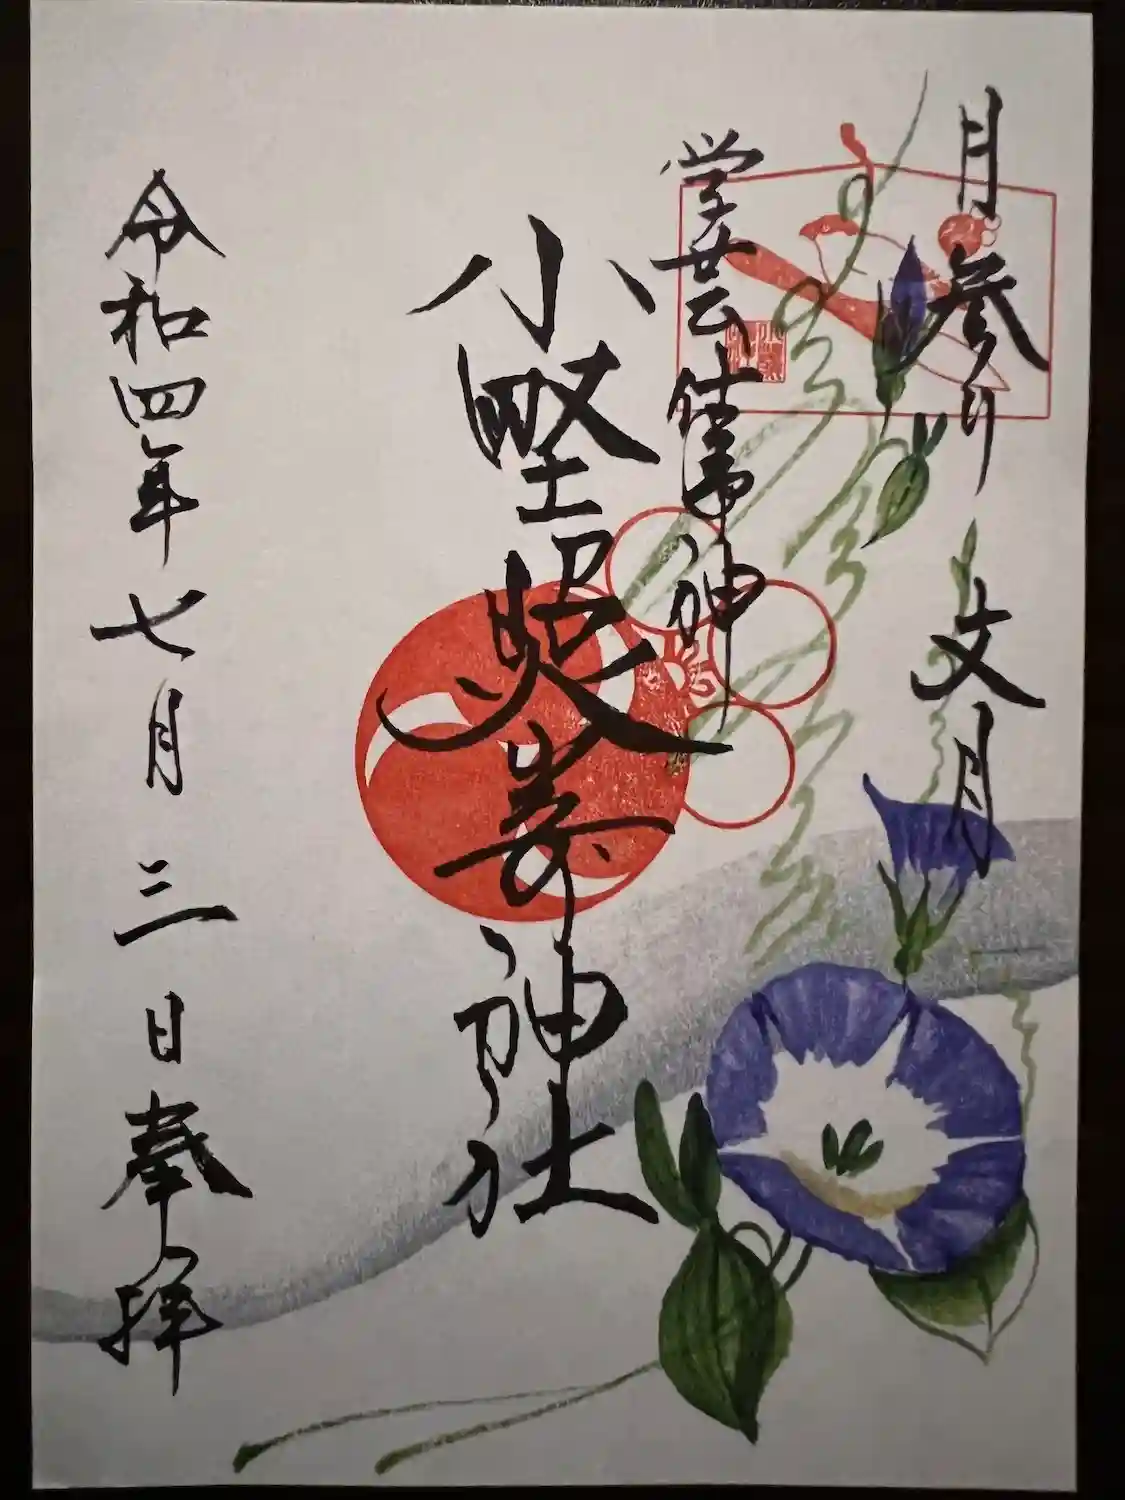 月参り 文月
学芸 世常神
小野照崎神社
令和四年七月三日奉拝